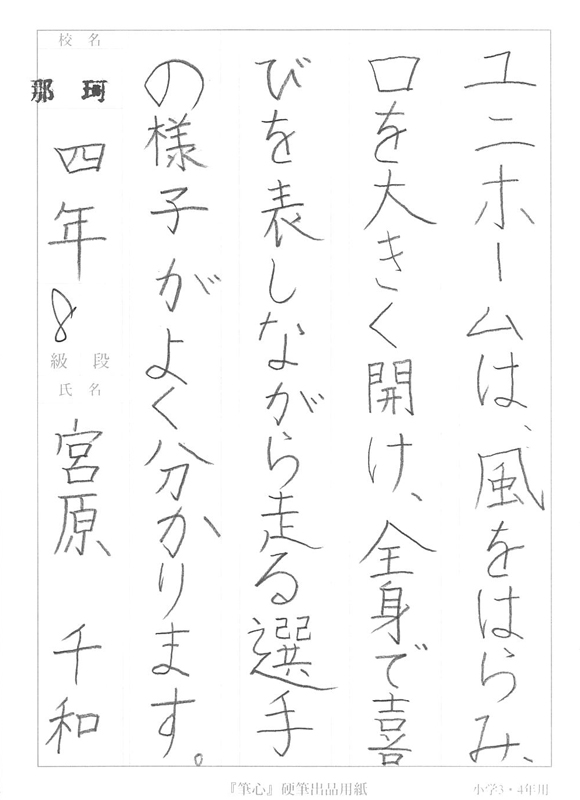 ユニホームは、風をはらみ、
口を大きく開け、全身で喜
びを表しながら走る選手
の様子がよく分かります。
校名
那珂
四年
8
級段
氏名
宮原 千和
『筆心』硬筆出品用紙
小学3・4年用